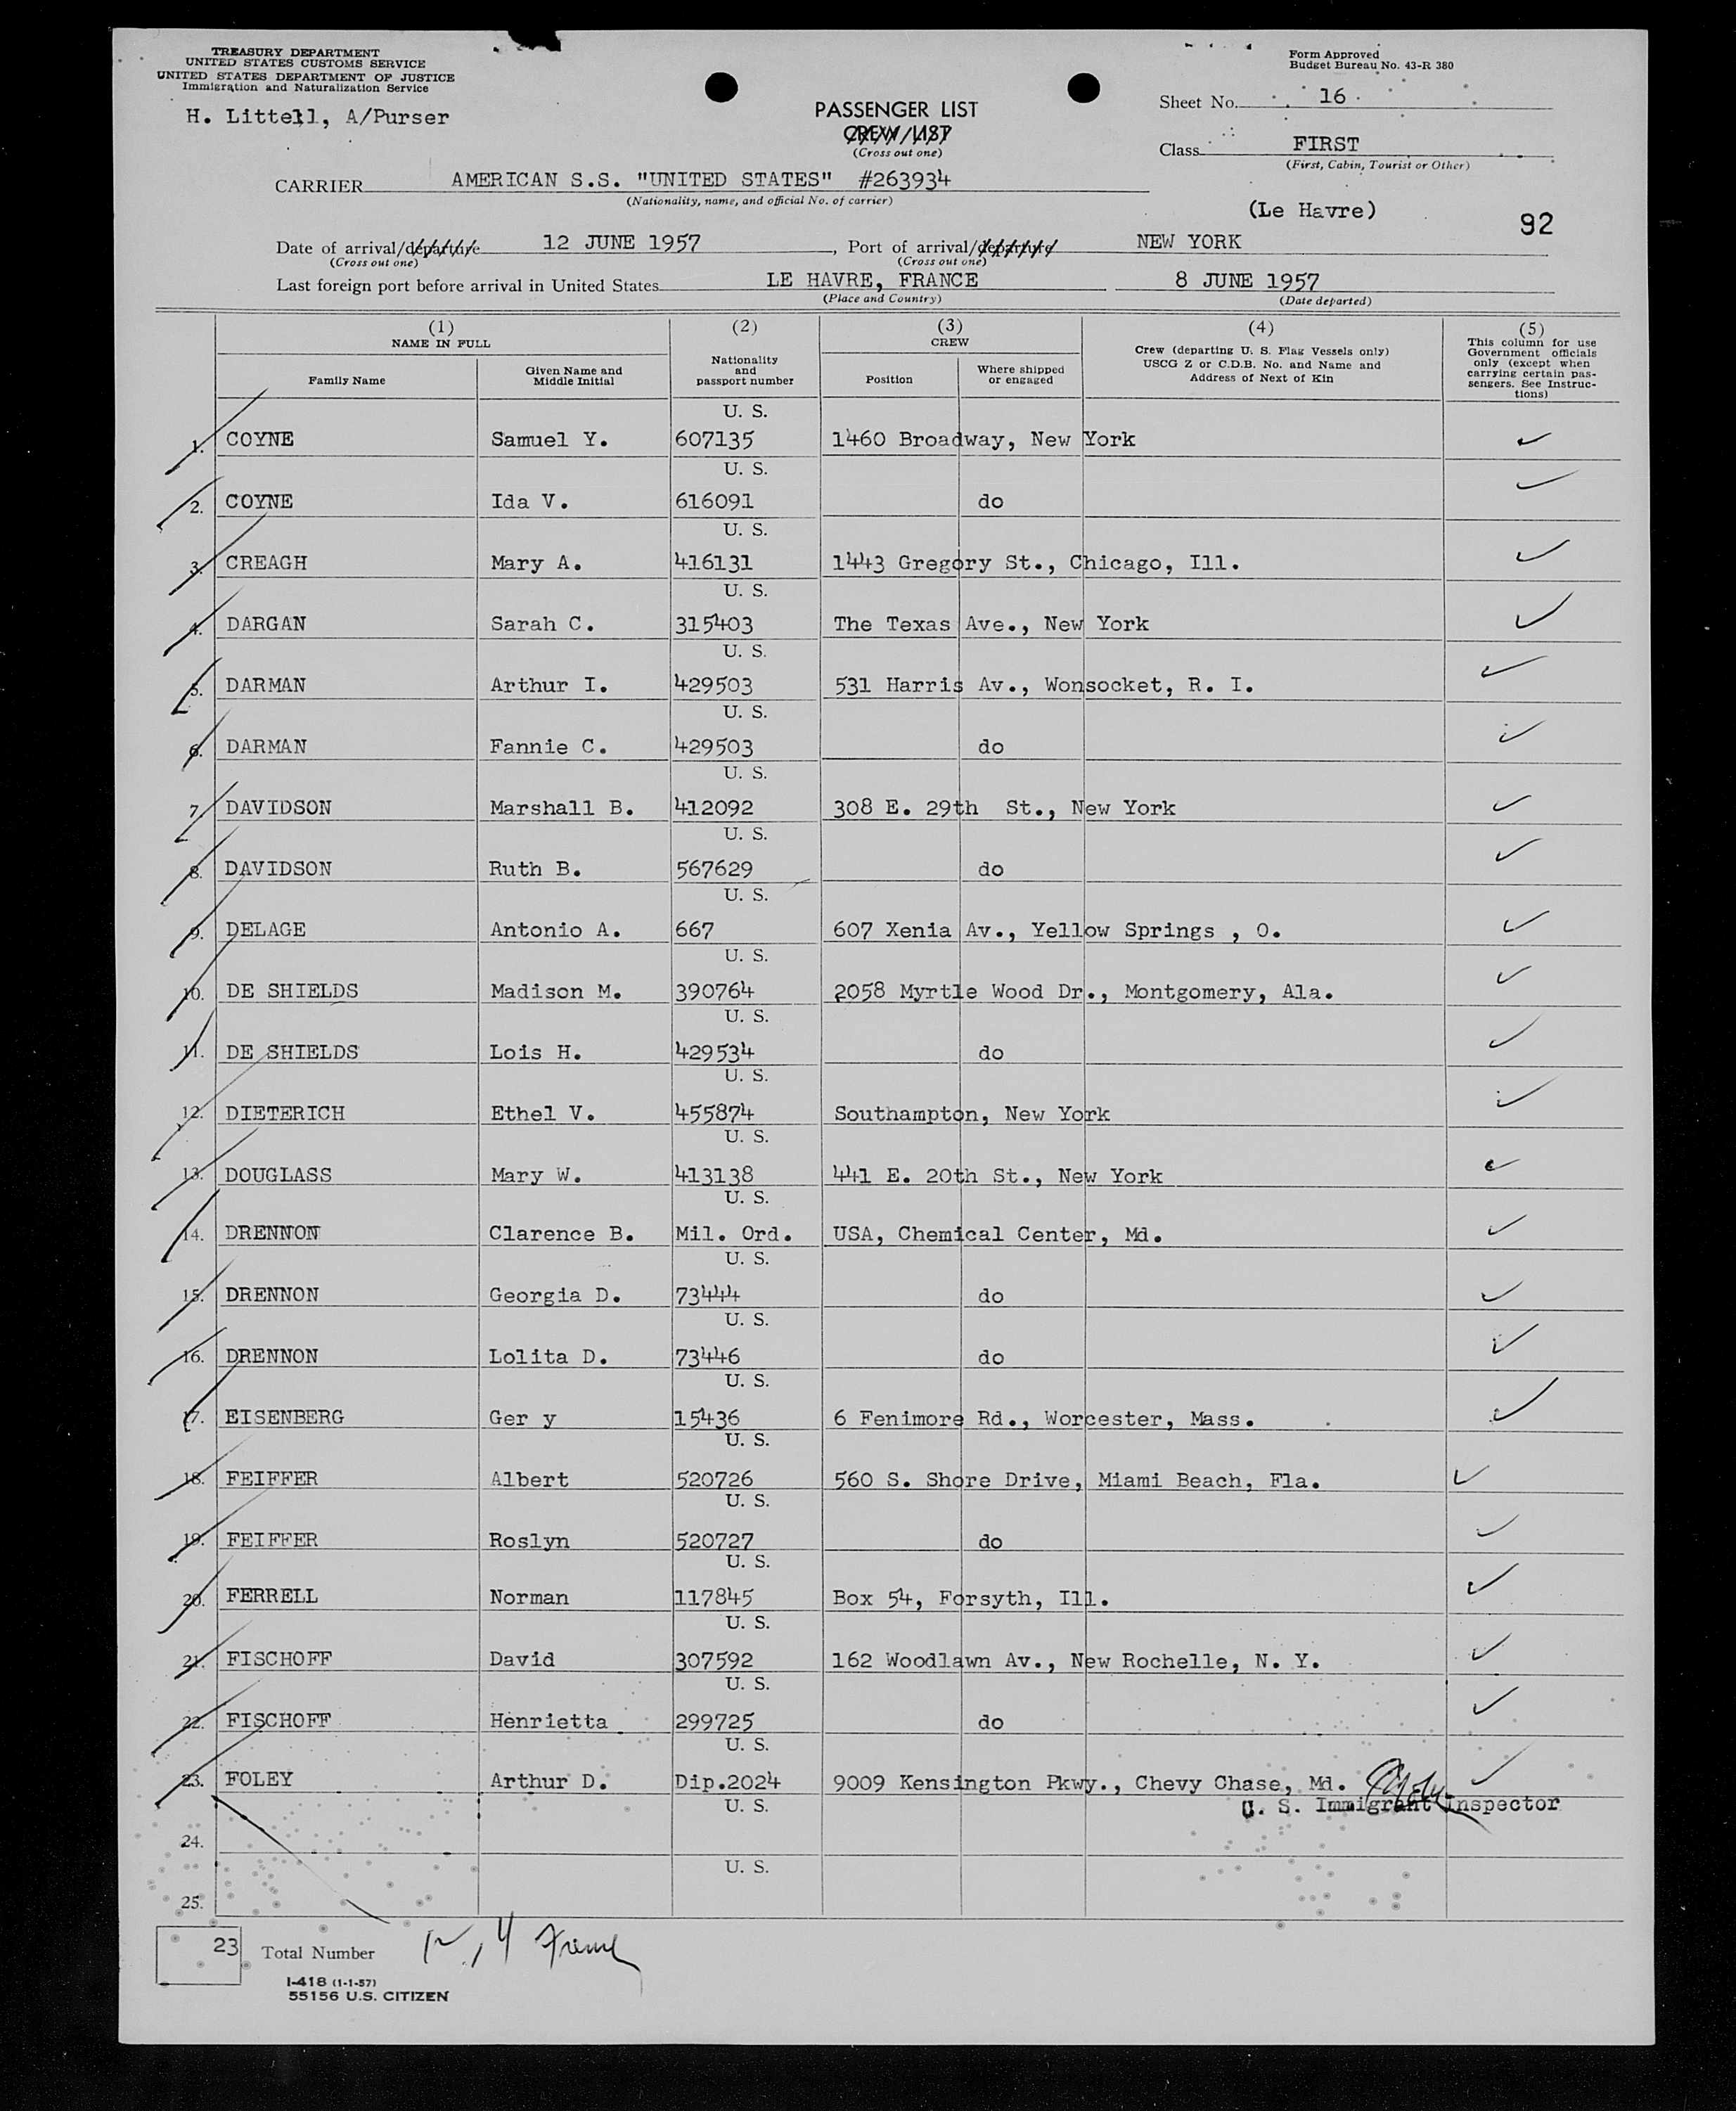 TREASURY DEPARTMENT
UNITED STATES CUSTOMS SERVICE
UNITED STATES DEPARTMENT OF JUSTICE
Immigration and Naturalization Service
H. Littell, A/Purser
Form Approved
Budget Bureau No. 43-R 380
PASSENGER LIST
CREW LIST
(Cross out one)
Sheet No. 16
Class FIRST
(First, Cabin, Tourist or Other)
CARRIER AMERICAN S.S. "UNITED STATES" #263934
(Nationality, name, and official No. of carrier)
(Le Havre)
92
Date of arrival/departure 12 JUNE 1957, Port of arrival/departure NEW YORK
(Cross out one) (Cross out one)
Last foreign port before arrival in United States LE HAVRE, FRANCE 8 JUNE 1957
(Place and Country) (Date departed)
(1) (2) (3) (4) (5)
NAME IN FULL
Family Name
Given Name and Middle Initial
Nationality and passport number
CREW
Position
Where shipped or engaged
Crew (departing U. S. Flag Vessels only) USCG Z or C.D.B. No. and Name and Address of Next of Kin
This column for use Government officials only (except when carrying certain passengers. See Instructions)
U. S.
1. COYNE Samuel Y. 607135 1460 Broadway, New York
U. S.
2. COYNE Ida V. 616091 do
U. S.
3. CREAGH Mary A. 416131 1443 Gregory St., Chicago, Ill.
U. S.
4. DARGAN Sarah C. 315403 The Texas Ave., New York
U. S.
5. DARMAN Arthur I. 429503 531 Harris Av., Wonsocket, R. I.
U. S.
6. DARMAN Fannie C. 429503 do
U. S.
7. DAVIDSON Marshall B. 412092 308 E. 29th St., New York
U. S.
8. DAVIDSON Ruth B. 567629 do
U. S.
9. DELAGE Antonio A. 667 607 Xenia Av., Yellow Springs , O.
U. S.
10. DE SHIELDS Madison M. 390764 2058 Myrtle Wood Dr., Montgomery, Ala.
U. S.
11. DE SHIELDS Lois H. 429534 do
U. S.
12. DIETERICH Ethel V. 455874 Southampton, New York
U. S.
13. DOUGLASS Mary W. 413138 441 E. 20th St., New York
U. S.
14. DRENNON Clarence B. Mil. Ord. USA, Chemical Center, Md.
U. S.
15. DRENNON Georgia D. 73444 do
U. S.
16. DRENNON Lolita D. 73446 do
U. S.
17. EISENBERG Ger y 15436 6 Fenimore Rd., Worcester, Mass.
U. S.
18. FEIFFER Albert 520726 560 S. Shore Drive, Miami Beach, Fla.
U. S.
19. FEIFFER Roslyn 520727 do
U. S.
20. FERRELL Norman 117845 Box 54, Forsyth, Ill.
U. S.
21. FISCHOFF David 307592 162 Woodlawn Av., New Rochelle, N. Y.
U. S.
22. FISCHOFF Henrietta 299725 do
U. S.
23. FOLEY Arthur D. Dip.2024 9009 Kensington Pkwy., Chevy Chase, Md.
U. S.
U. S. Immigrant Inspector
24.
U. S.
25.
23 Total Number
I-418 (1-1-57)
55156 U.S. CITIZEN